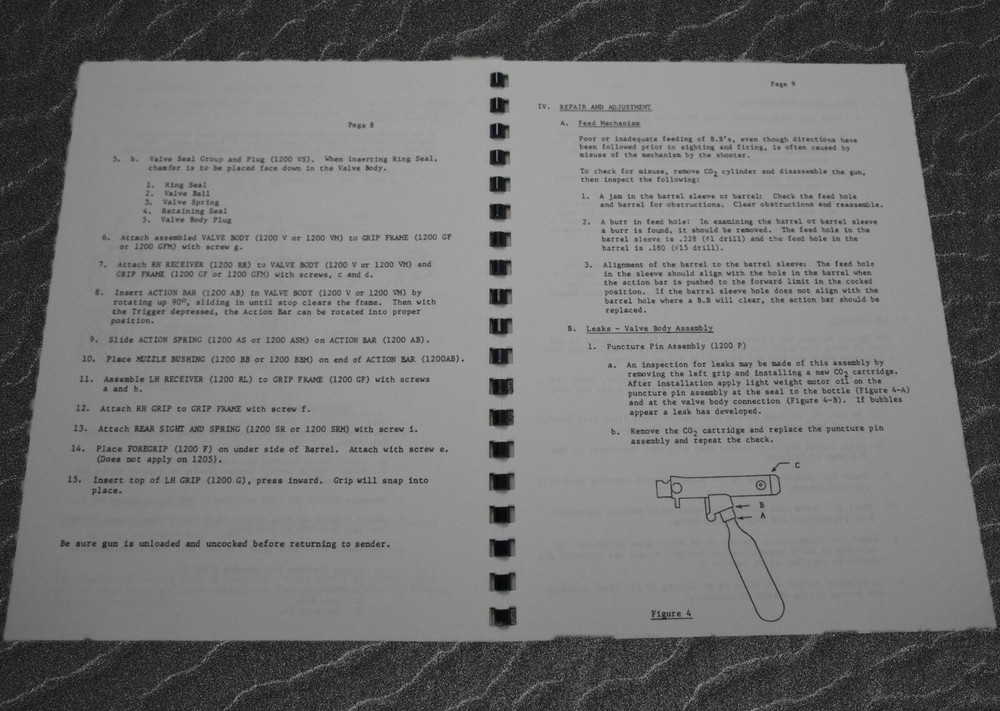 Page 8
5. b. Valve Seal Group and Plug (1200 VS). When inserting Ring Seal,
chamfer is to be placed face down in the Valve Body.
1. Ring Seal
2. Valve Ball
3. Valve Spring
4. Retaining Seal
5. Valve Body Plug
6. Attach assembled VALVE BODY (1200 V or 1200 VM) to GRIP FRAME (1200 GF
or 1200 GFM) with screw g.
7. Attach RH RECEIVER (1200 RR) to VALVE BODY (1200 V or 1200 VM) and
GRIP FRAME (1200 GF or 1200 GFM) with screws, c and d.
8. Insert ACTION BAR (1200 AB) in VALVE BODY (1200 V or 1200 VM) by
rotating up 90°, sliding in until stop clears the frame. Then with
the Trigger depressed, the Action Bar can be rotated into proper
position.
9. Slide ACTION SPRING (1200 AS or 1200 ASM) on ACTION BAR (1200 AB).
10. Place MUZZLE BUSHING (1200 BB or 1200 BBM) on end of ACTION BAR (1200AB).
11. Assemble LH RECEIVER (1200 RL) to GRIP FRAME (1200 GF) with screws
a and b.
12. Attach RH GRIP to GRIP FRAME with screw f.
13. Attach REAR SIGHT AND SPRING (1200 SR or 1200 SRM) with screw i.
14. Place FOREGRIP (1200 F) on under side of Barrel. Attach with screw e.
(Does not apply on 1205).
15. Insert top of LH GRIP (1200 G), press inward. Grip will snap into
place.
Be sure gun is unloaded and uncocked before returning to sender.
Page 9
IV. REPAIR AND ADJUSTMENT
A. Feed Mechanism
Poor or inadequate feeding of B.B's, even though directions have
been followed prior to sighting and firing, is often caused by
misuse of the mechanism by the shooter.
To check for misuse, remove CO₂ cylinder and disassemble the gun,
then inspect the following:
1. A jam in the barrel sleeve or barrel: Check the feed hole
and barrel for obstructions. Clear obstructions and reassemble.
2. A burr in feed hole: In examining the barrel or barrel sleeve
a burr is found, it should be removed. The feed hole in the
barrel sleeve is .228 (#1 drill) and the feed hole in the
barrel is .180 (#15 drill).
3. Alignment of the barrel to the barrel sleeve: The feed hole
in the sleeve should align with the hole in the barrel when
the action bar is pushed to the forward limit in the cocked
position. If the barrel sleeve hole does not align with the
barrel hole where a B.B will clear, the action bar should be
replaced.
B. Leaks - Valve Body Assembly
1. Puncture Pin Assembly (1200 P)
a. An inspection for leaks may be made of this assembly by
removing the left grip and installing a new CO₂ cartridge.
After installation apply light weight motor oil on the
puncture pin assembly at the seal to the bottle (Figure 4-A)
and at the valve body connection (Figure 4-B). If bubbles
appear a leak has developed.
b. Remove the CO₂ cartridge and replace the puncture pin
assembly and repeat the check.
C
B
A
Figure 4